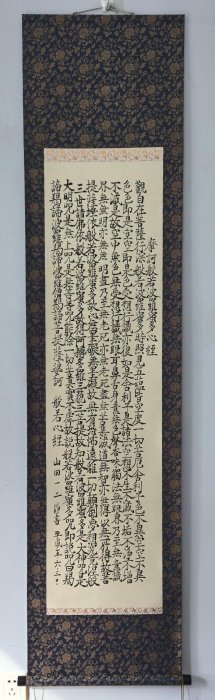 摩訶般若波羅蜜多心經
觀自在菩薩行深般若波羅蜜多時照見五蘊皆空度一切苦厄舍利子色不異空空不異
色色即是空空即是色受想行識亦復如是舍利子是諸法空相不生不滅不垢不淨不增
不減是故空中無色無受想行識無眼耳鼻舌身意無色聲香味觸法無眼界乃至無意識
界無無明亦無無明盡乃至無老死亦無老死盡無苦集滅道無智亦無得以無所得故菩
提薩埵依般若波羅蜜多故心無罣礙無罣礙故無有恐怖遠離一切顛倒夢想究竟涅槃
三世諸佛依般若波羅蜜多故得阿耨多羅三藐三菩提故知般若波羅蜜多是大神咒是
大明咒是無上咒是無等等咒能除一切苦真實不虛故說般若波羅蜜多咒即說咒曰揭
諦揭諦波羅揭諦波羅僧揭諦菩提薩婆訶 般若心經
山田一二